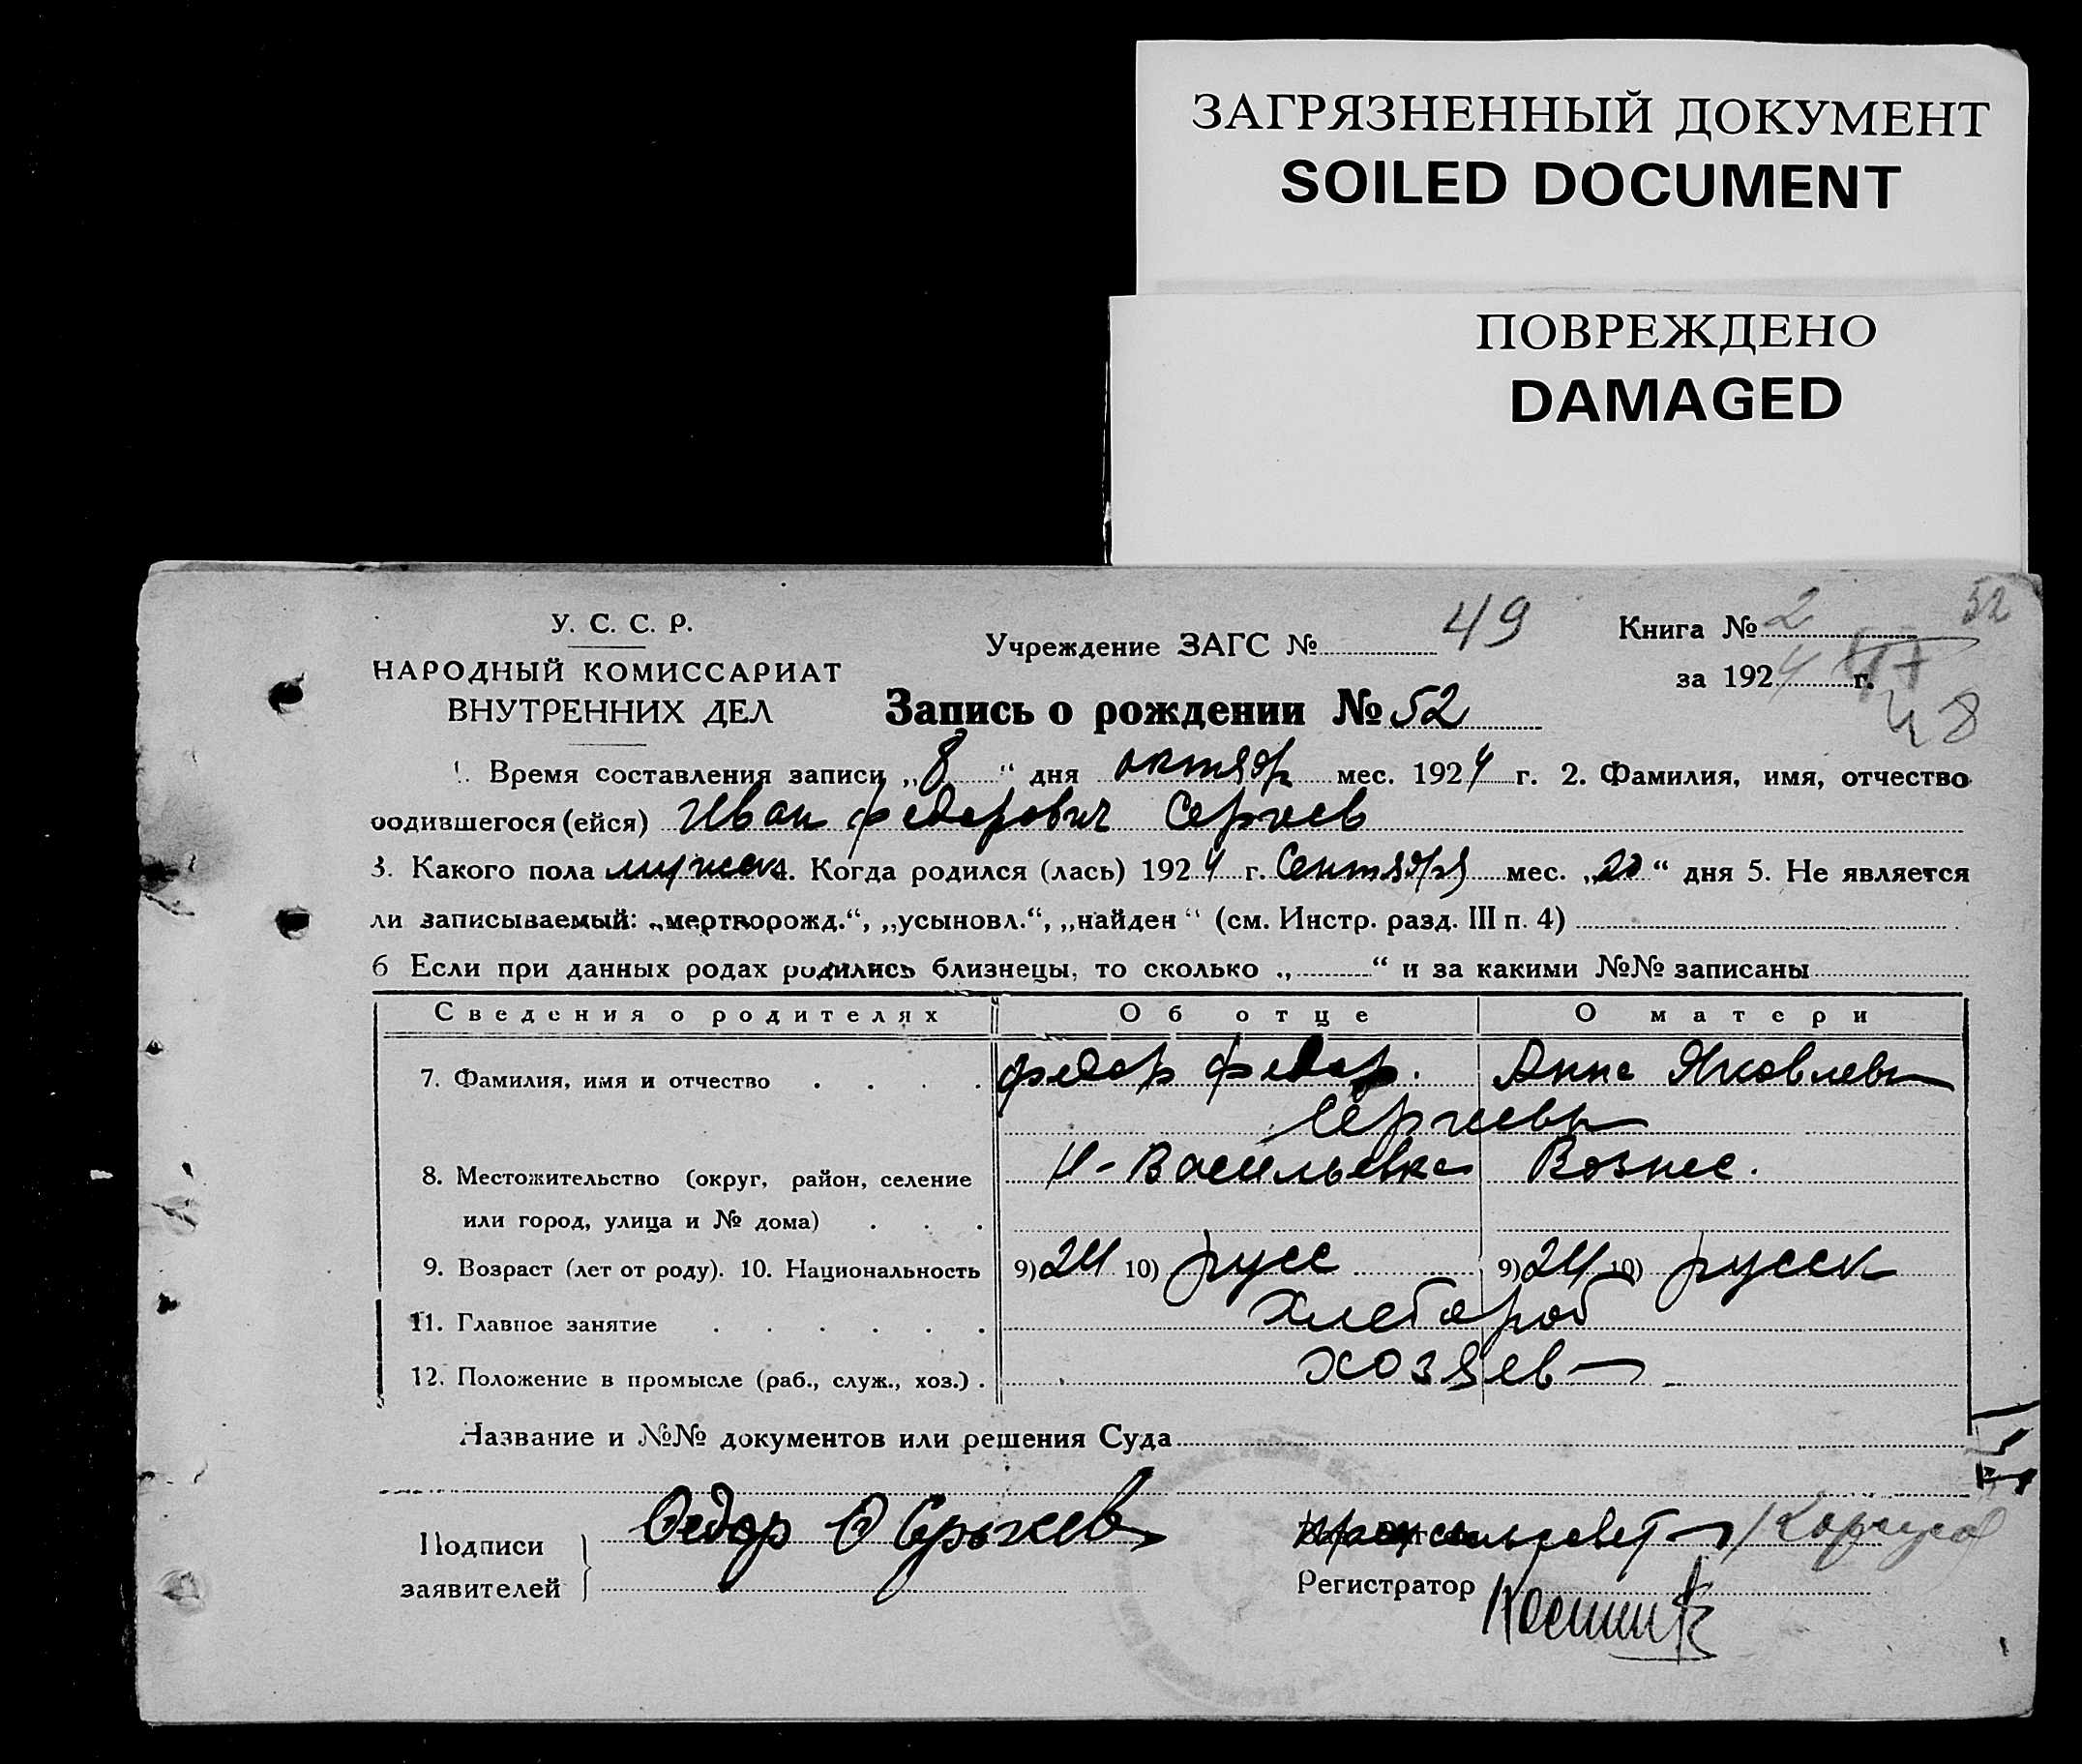 ЗАГРЯЗНЕННЫЙ ДОКУМЕНТ
SOILED DOCUMENT
ПОВРЕЖДЕНО
DAMAGED
52
У. С. С. Р.
НАРОДНЫЙ КОМИССАРИАТ
ВНУТРЕННИХ ДЕЛ
Учреждение ЗАГС № 49
Книга № 2
за 1924 г.
48
Запись о рождении № 52
1. Время составления записи „8“ дня октябр мес. 1924 г. 2. Фамилия, имя, отчество
родившегося (ейся) Иван Федорович Сергеев
3. Какого пола мужск 4. Когда родился (лась) 1924 г. Сентября мес. „20“ дня 5. Не является
ли записываемый: „мертворожд.“, „усыновл.“, „найден“ (см. Инстр. разд. III п. 4)
6 Если при данных родах родились близнецы, то сколько „ “ и за какими №№ записаны
Сведения о родителях Об отце О матери
7. Фамилия, имя и отчество Федор Федор. Анна Яковлевн
Сергеевы
8. Местожительство (округ, район, селение Н-Васильевка Вознес.
или город, улица и № дома)
9. Возраст (лет от роду). 10. Национальность 9) 24 10) русс 9) 24 10) русск
11. Главное занятие Хлебороб
12. Положение в промысле (раб., служ., хоз.) хозяев
Название и №№ документов или решения Суда
Подписи
заявителей
Федор Ф Сергеев
Регистратор